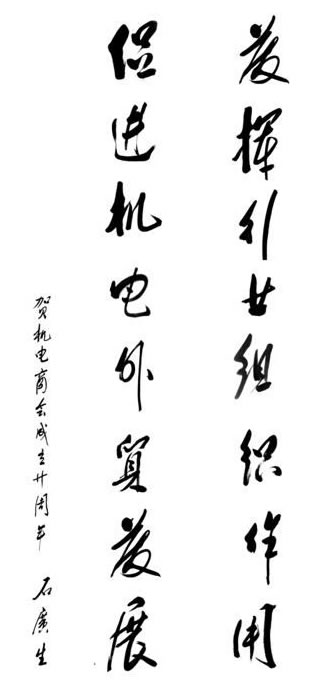 发挥行业组织作用
促进机电外贸发展
贺机电商会成立廿周年 石廣生